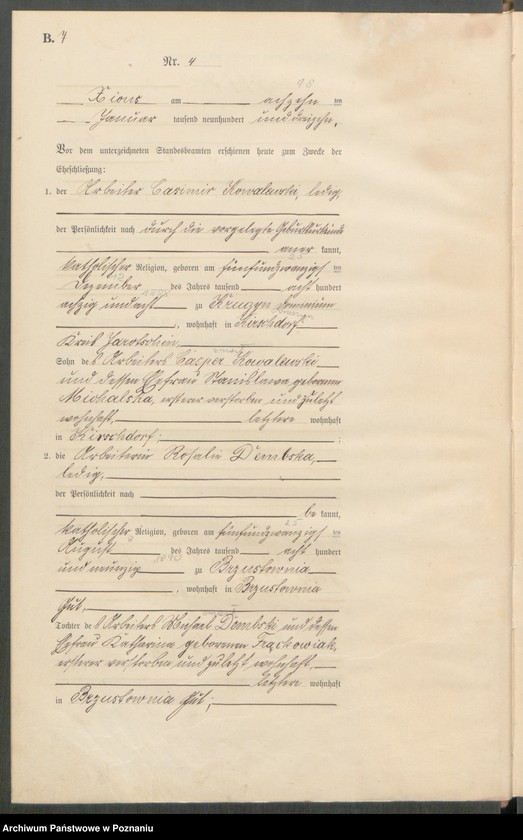 B. 7
Nr. 4
18
Xions am achzehn ten
Januar tausend neunhundert und dreizehn.
Vor dem unterzeichneten Standesbeamten erschienen heute zum Zwecke der
Eheschließung:
1. der Arbeiter Casimir Kowalewski, ledig,
der Persönlichkeit nach durch die vorgelegte Geburtsurkunde
aner kannt,
katholischer Religion, geboren am fünfundzwanzigsten
Dezember des Jahres tausend acht hundert
achzig und acht zu Kruczyn Dominium
, wohnhaft in Hirschdorf
Kreis Jarotschin
Sohn des Arbeiters Casper Kowalewski
und dessen Ehefrau Stanislawa geborenen
Michalska, ersterer verstorben und zuletzt
wohnhaft, letztere wohnhaft
in Hirschdorf; ;
2. die Arbeiterin Rosalie Dembska,
ledig,
der Persönlichkeit nach
be kannt,
katholischer Religion, geboren am fünfundzwanzigsten
August des Jahres tausend acht hundert
und neunzig 1890 zu Brzustownia
, wohnhaft in Brzustownia
Gut,
Tochter des Arbeiters Dembski und dessen
Ehefrau Katharina geborenen Frąckowiak,
ersterer verstorben und zuletzt wohnhaft,
letztere wohnhaft
in Brzustownia Gut;
Archiwum Państwowe w Poznaniu